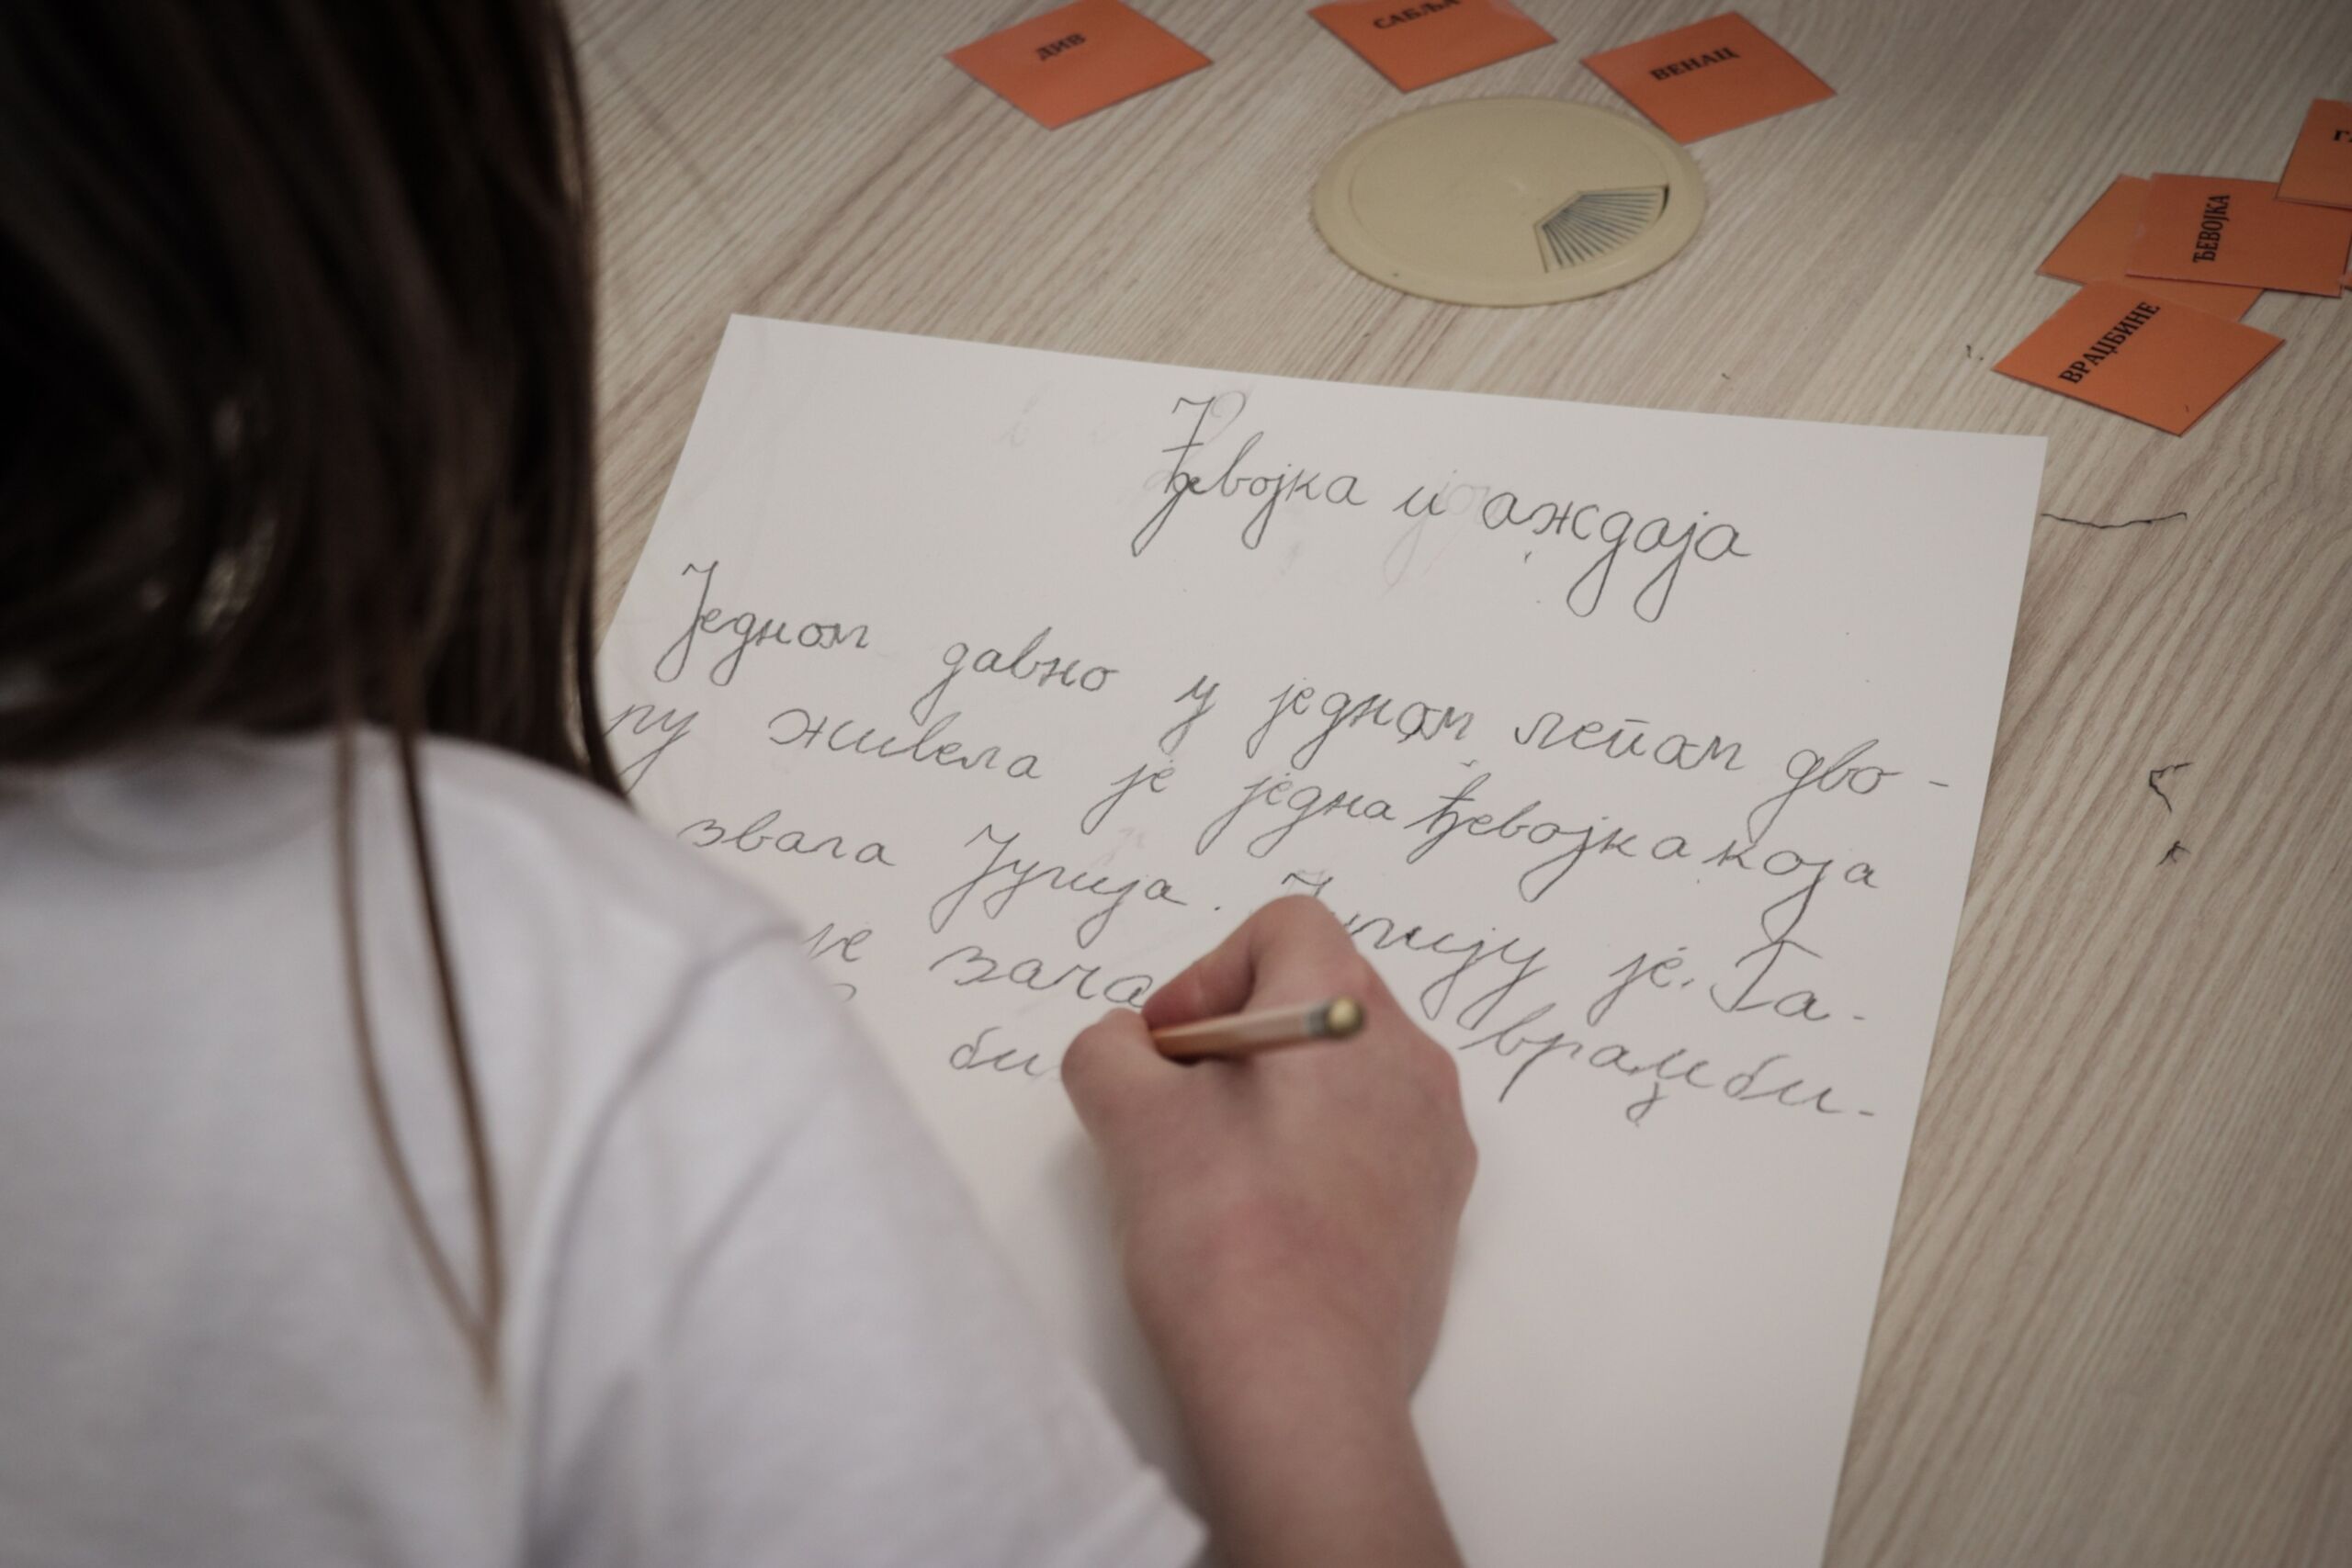 ДИВ
САБЉА
ВЕНАЦ
ЂЕВОЈКА
ВРАЏБИНЕ
Ђевојка и аждаја
Једном давно у једном лепом дво-
ру живела је једна ђевојка која
звала Јулија. Јулију је Га-
је
би врaџби-